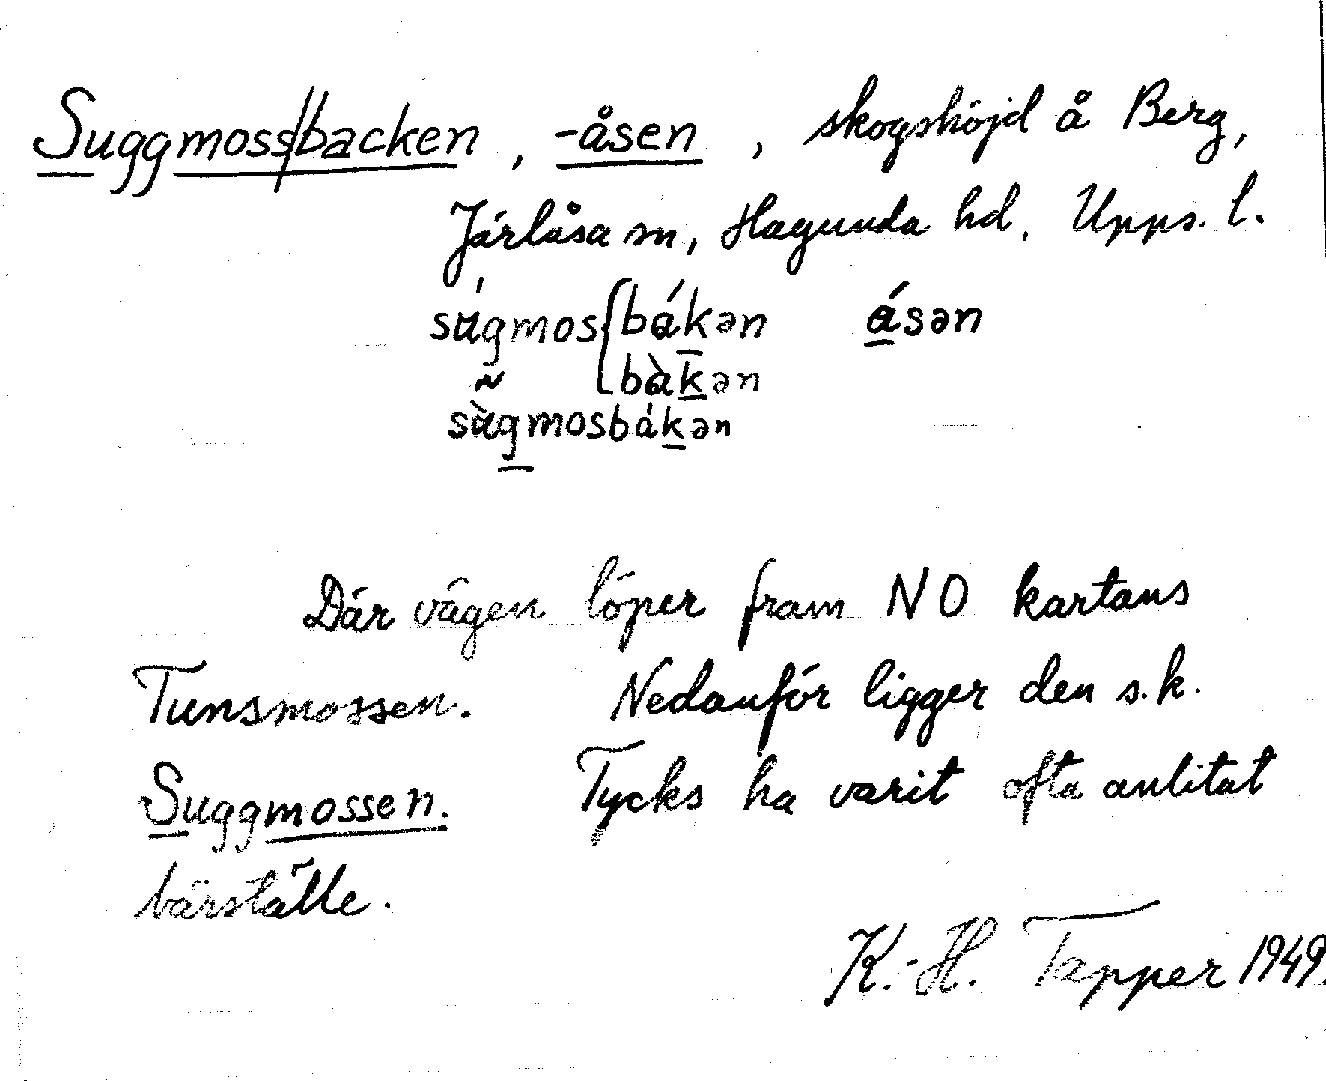 Suggmoss/backen, -åsen, skogshöjd å Berg,
Järlåsa sn, Hagunda hd, Upps. l.
súgmos{bákən ásən
bàkən
sùgmosbákən
Där vägen löper fram NO kartans
Tunsmossen. Nedanför ligger den s.k.
Suggmossen. Tycks ha varit ofta anlitat
bärställe.
K.-H. Tapper 1949.